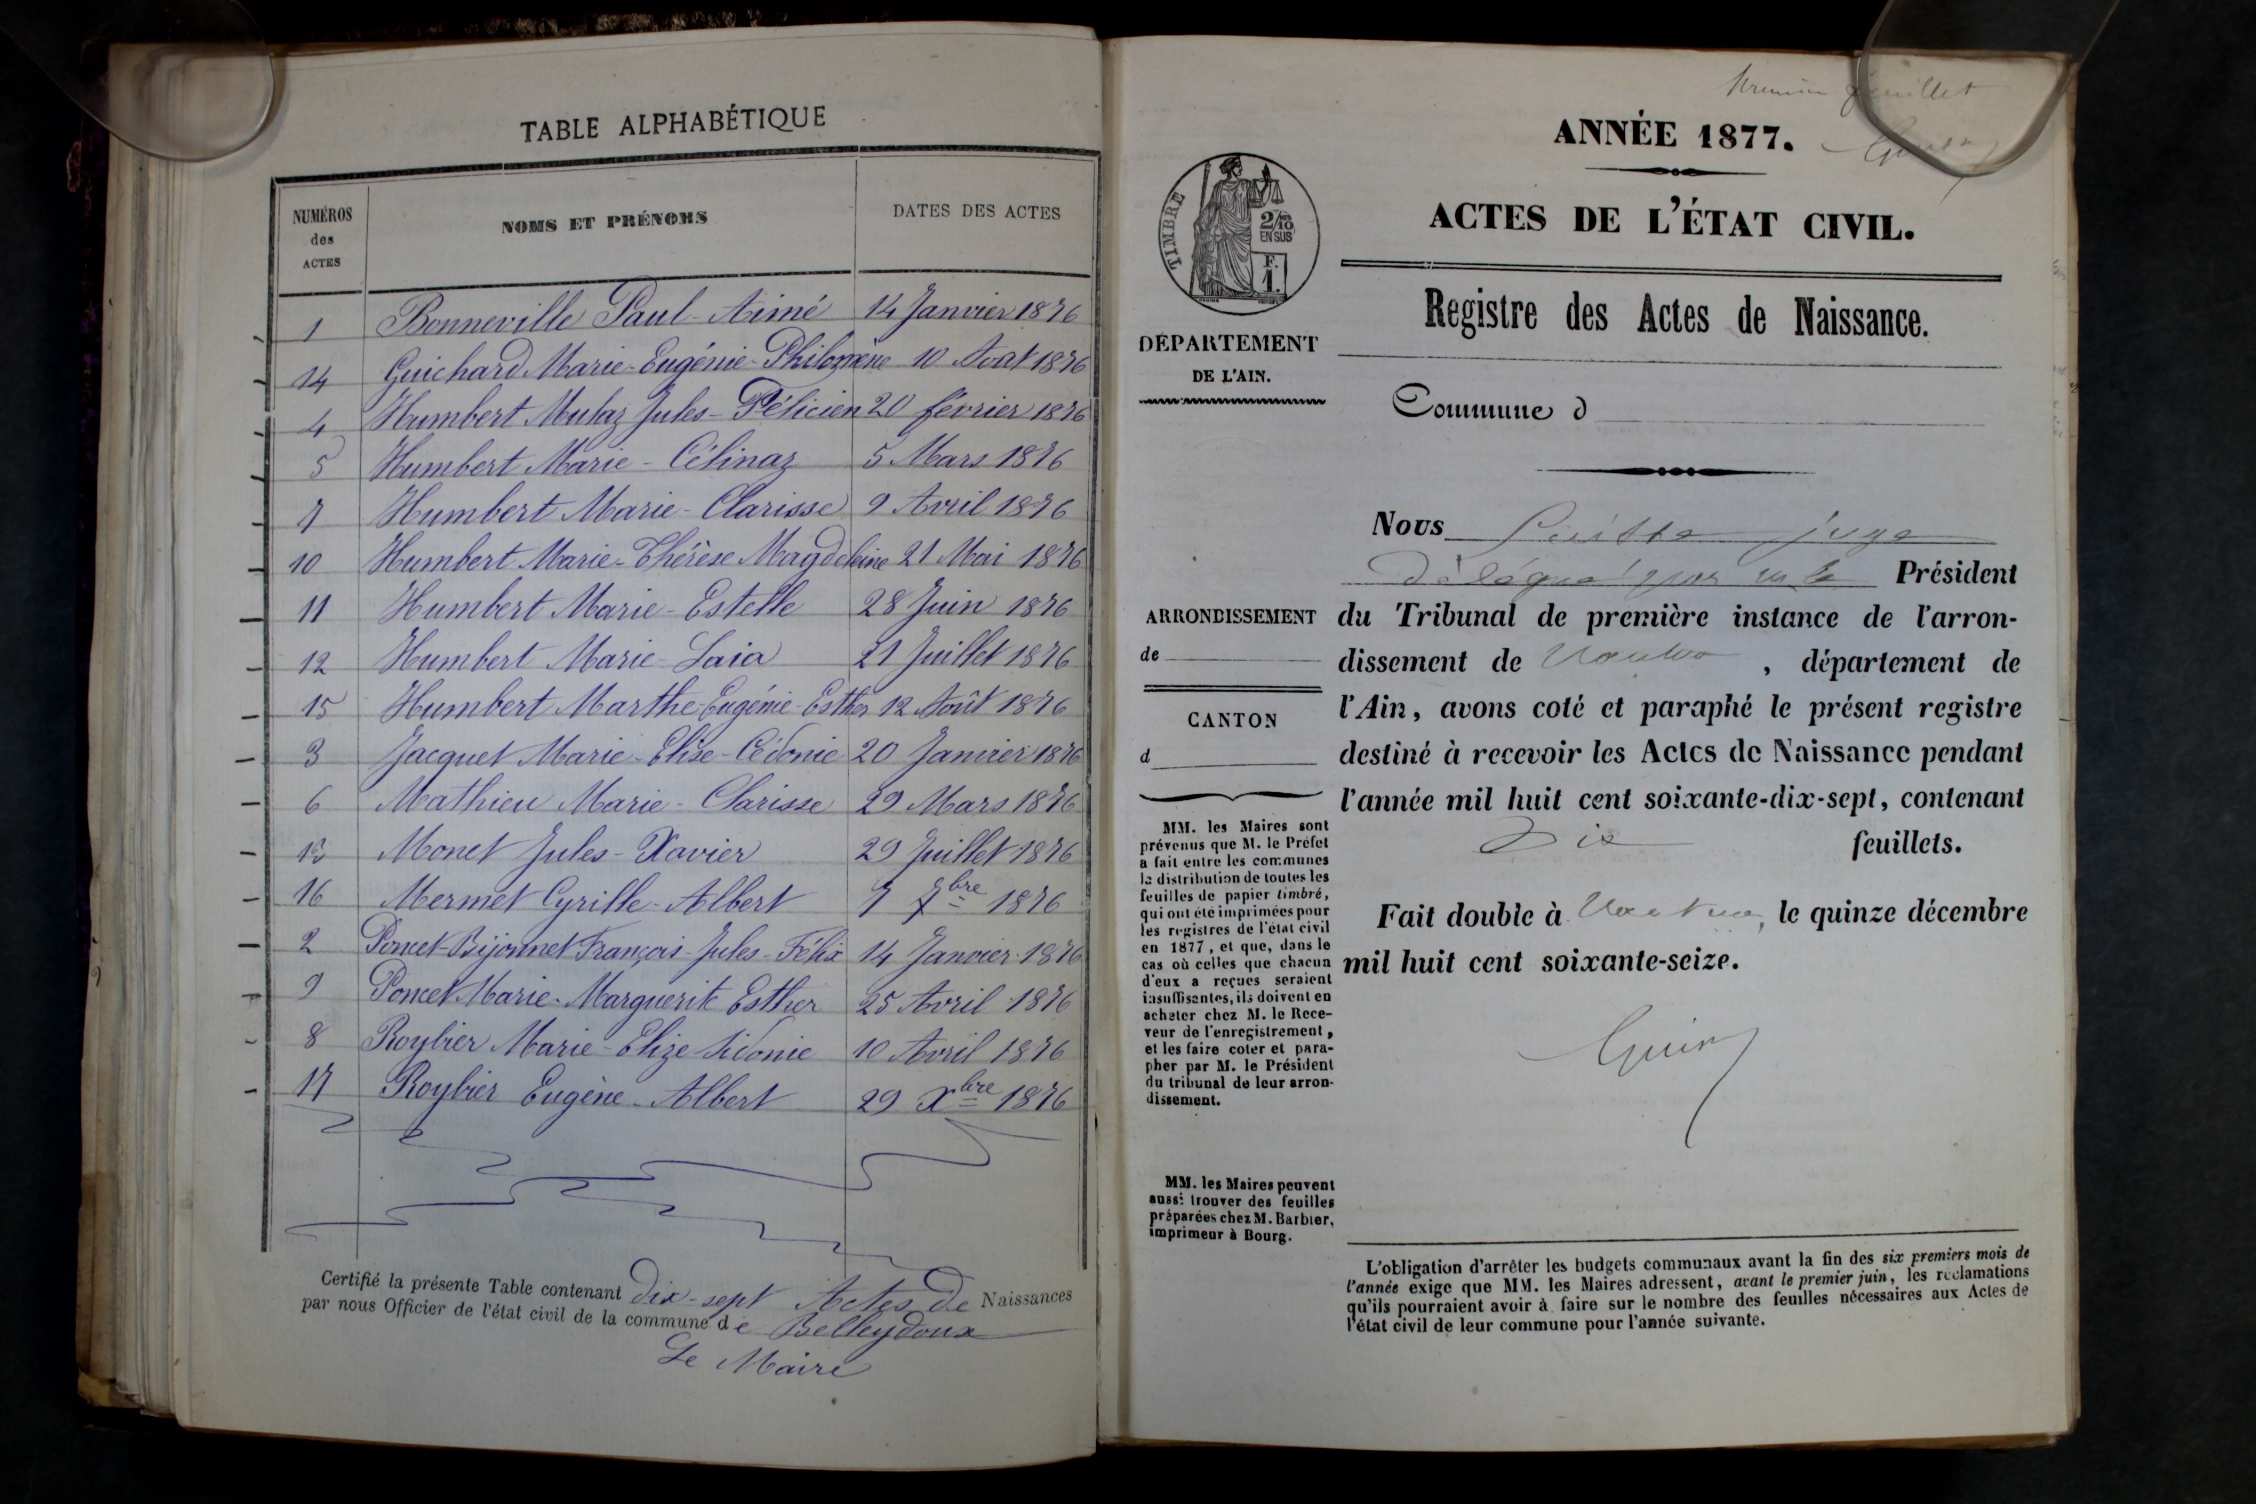 TABLE ALPHABÉTIQUE
NUMÉROS des ACTES NOMS ET PRÉNOMS DATES DES ACTES
1 Bonneville Paul-Aimé 14 Janvier 1876
14 Guichard Marie-Eugénie-Philomène 10 Aout 1876
4 Humbert Mulaz Jules-Félicien 20 février 1876
5 Humbert Marie-Célinaz 5 Mars 1876
7 Humbert Marie-Clarisse 9 Avril 1876
10 Humbert Marie-Thérèse Magdeleine 21 Mai 1876
11 Humbert Marie-Estelle 28 Juin 1876
12 Humbert Marie-Laia 21 Juillet 1876
15 Humbert Marthe-Eugénie-Esther 12 Août 1876
3 Jacquet Marie-Elise-Cédonie 20 Janvier 1876
6 Mathieu Marie-Clarisse 29 Mars 1876
13 Monet Jules-Xavier 29 Juillet 1876
16 Mermet Cyrille-Albert 7 7bre 1876
2 Poncet-Bijonnet François-Jules-Félix 14 Janvier 1876
9 Poncet Marie-Marguerite Esther 25 Avril 1876
8 Roybier Marie-Elize Sidonie 10 Avril 1876
17 Roybier Eugène-Albert 29 Xbre 1876
Certifié la présente Table contenant dix-sept Actes de Naissances
par nous Officier de l'état civil de la commune de Belleydoux
Le Maire
Premier feuillet
ANNÉE 1877.
Guin
ACTES DE L'ÉTAT CIVIL.
TIMBRE
2/10 EN SUS
F. 1.
Registre des Actes de Naissance.
DÉPARTEMENT
DE L'AIN.
Commune d
Nous juge
délégué par Président
ARRONDISSEMENT
de
CANTON
d
du Tribunal de première instance de l'arron-
dissement de Nantua, département de
l'Ain, avons coté et paraphé le présent registre
destiné à recevoir les Actes de Naissance pendant
l'année mil huit cent soixante-dix-sept, contenant
Dix feuillets.
Fait double à Nantua, le quinze décembre
mil huit cent soixante-seize.
Guin
MM. les Maires sont
prévenus que M. le Préfet
a fait entre les communes
la distribution de toutes les
feuilles de papier timbré,
qui ont été imprimées pour
les registres de l'état civil
en 1877, et que, dans le
cas où celles que chacun
d'eux a reçues seraient
insuffisantes, ils doivent en
acheter chez M. le Rece-
veur de l'enregistrement,
et les faire coter et para-
pher par M. le Président
du tribunal de leur arron-
dissement.
MM. les Maires peuvent
aussi trouver des feuilles
préparées chez M. Barbier,
imprimeur à Bourg.
L'obligation d'arrêter les budgets communaux avant la fin des six premiers mois de
l'année exige que MM. les Maires adressent, avant le premier juin, les réclamations
qu'ils pourraient avoir à faire sur le nombre des feuilles nécessaires aux Actes de
l'état civil de leur commune pour l'année suivante.